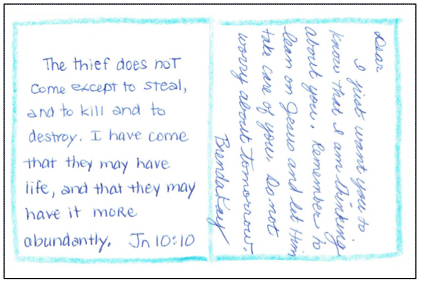 The thief does not
come except to steal,
and to kill and to
destroy. I have come
that they may have
life, and that they may
have it more
abundantly. Jn 10:10
Dear
I just want you to
know that I am thinking
about you. Remember to
lean on Jesus and let Him
take care of you. Do not
worry about tomorrow.
BrendaKay